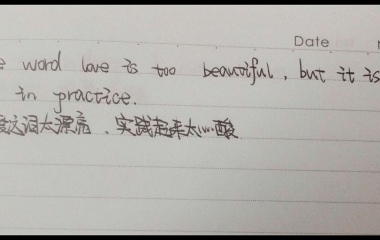 Date
word love is too beautiful, but it is
in practice.
这词太漂亮、实践起来太心酸